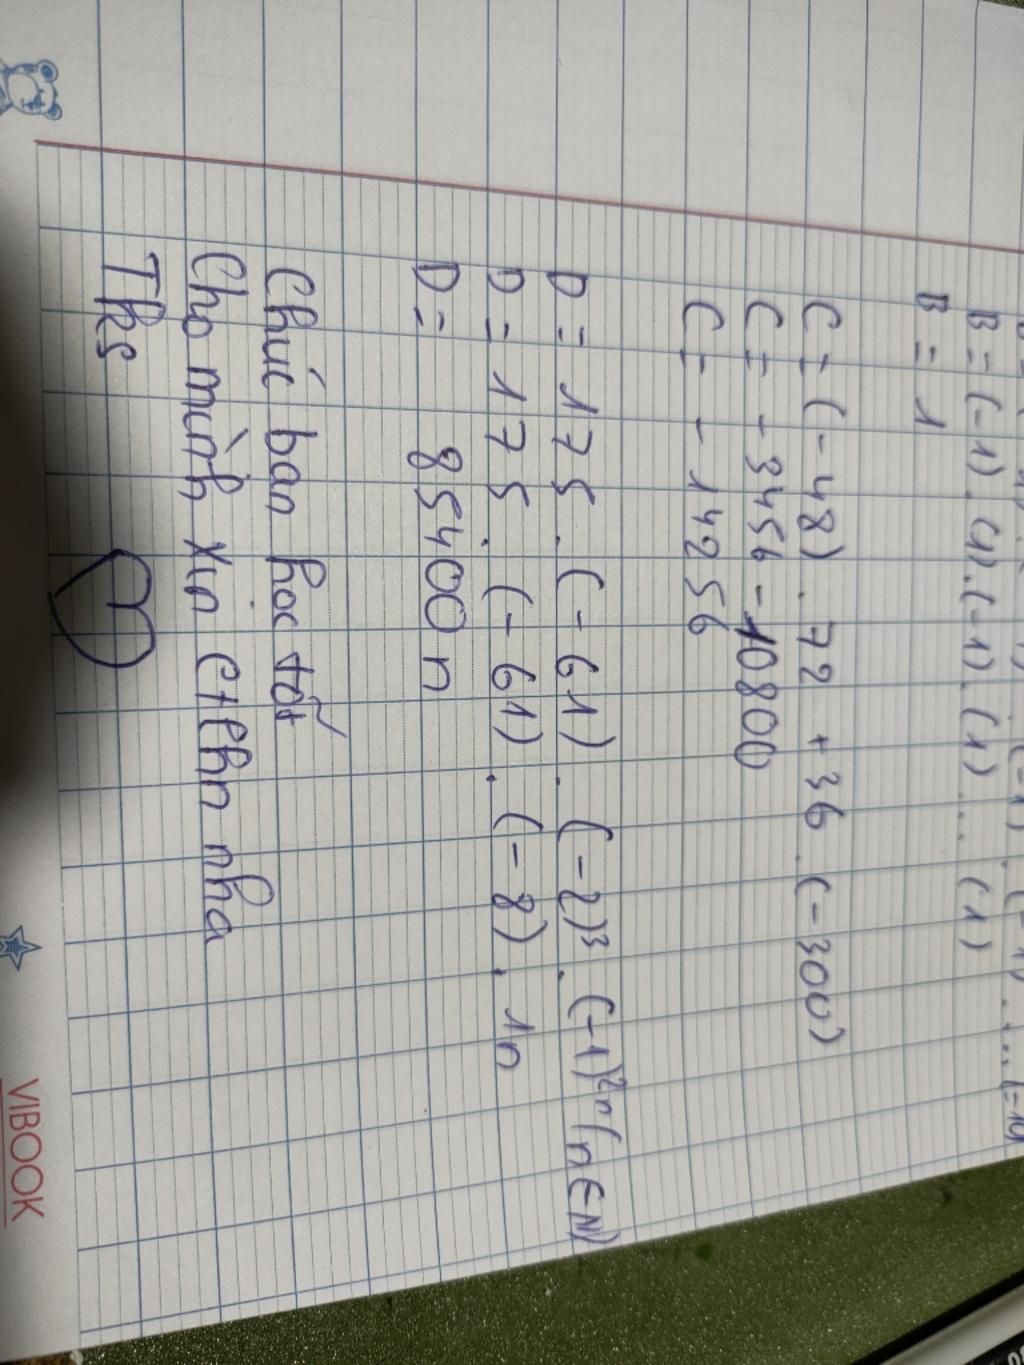 B = (-1). (1).(-1). (1) ... (1)
B = 1
C = (-48) . 72 + 36 . (-300)
C = -3456 - 10800
C = -14256
D = 175 . (-61) . (-2)³ . (-1)²ⁿ (n ∈ N)
D = 175 . (-61) . (-8) . 1n
D = 85400 n
Chúc bạn học tốt
Cho mình xin ctlhn nha
Thks
VIBOOK